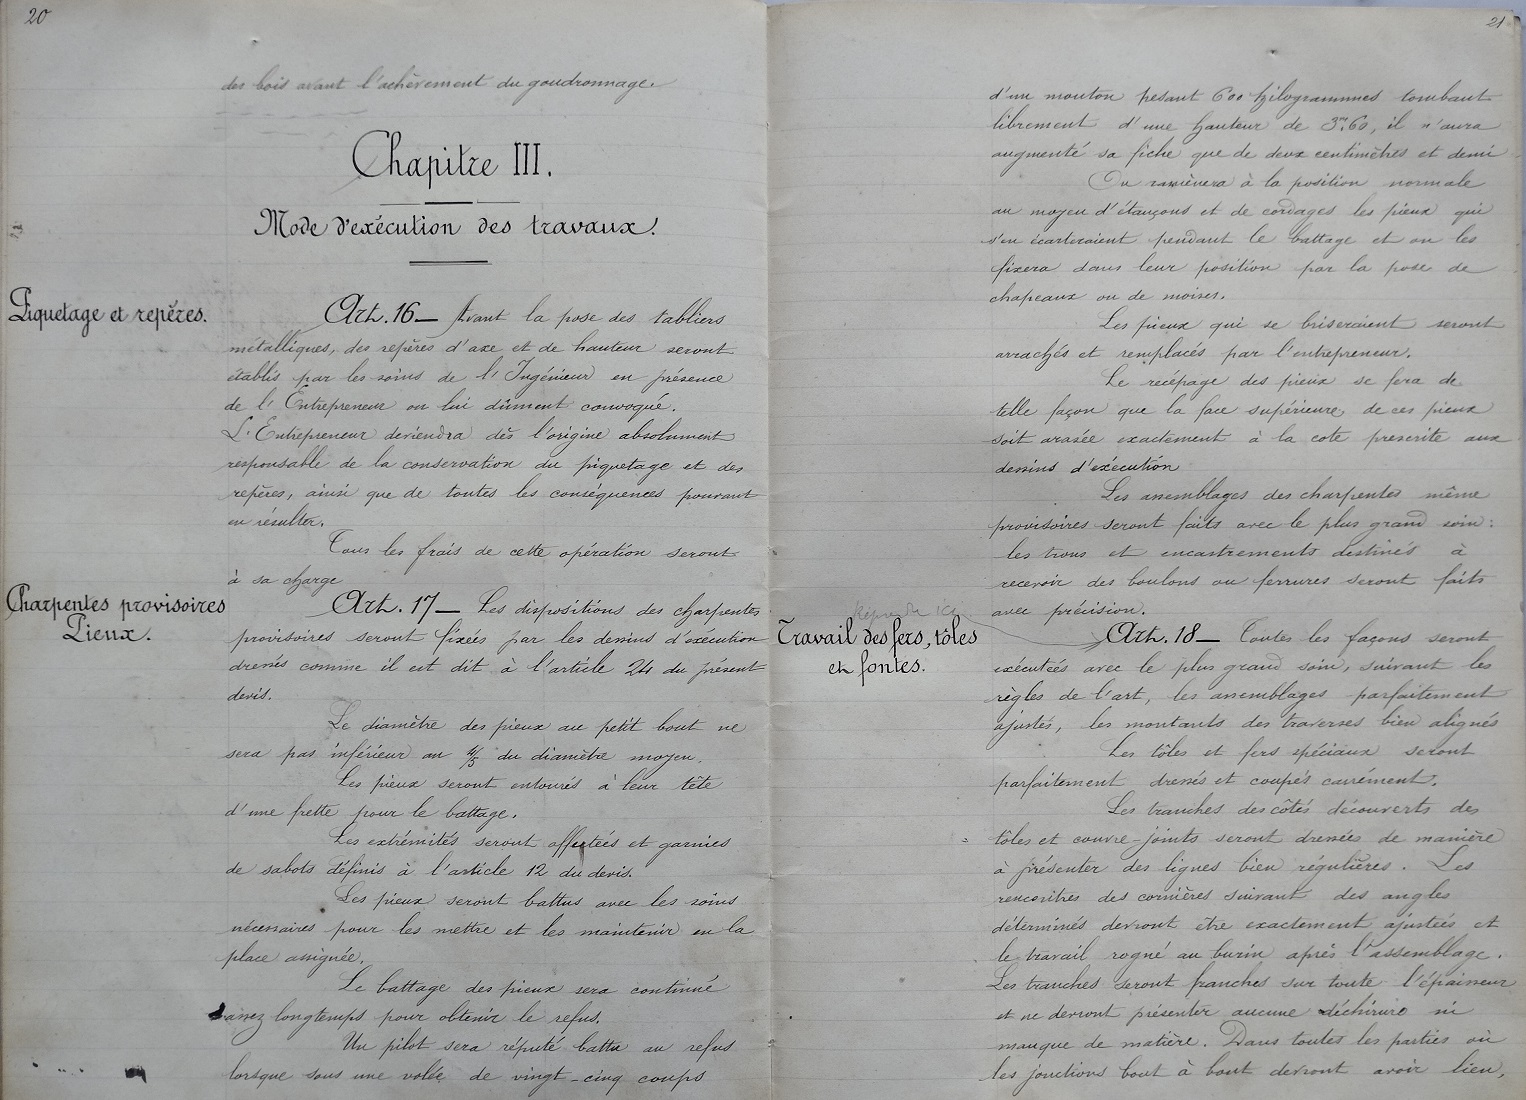 20
des bois avant l'achèvement du goudronnage.
Chapitre III.
Mode d'exécution des travaux.
Piquetage et repères.
Art. 16 — Avant la pose des tabliers
métalliques, des repères d'axe et de hauteur seront
établis par les soins de l'Ingénieur en présence
de l'Entrepreneur ou lui dûment convoqué.
L'Entrepreneur deviendra dès l'origine absolument
responsable de la conservation du piquetage et des
repères, ainsi que de toutes les conséquences pouvant
en résulter.
Tous les frais de cette opération seront
à sa charge
Charpentes provisoires
Pieux.
Art. 17 — Les dispositions des charpentes
provisoires seront fixées par les dessins d'exécution
dressés comme il est dit à l'article 24 du présent
devis.
Le diamètre des pieux au petit bout ne
sera pas inférieur au 4/5 du diamètre moyen.
Les pieux seront entourés à leur tête
d'une frette pour le battage.
Les extrémités seront affûtées et garnies
de sabots définis à l'article 12 du devis.
Les pieux seront battus avec les soins
nécessaires pour les mettre et les maintenir en la
place assignée.
Le battage des pieux sera continué
assez longtemps pour obtenir le refus.
Un pilot sera réputé battu au refus
lorsque sous une volée de vingt-cinq coups
21
d'un mouton pesant 600 kilogrammes tombant
librement d'une hauteur de 3m,60, il n'aura
augmenté sa fiche que de deux centimètres et demi
On ramènera à la position normale
au moyen d'étançons et de cordages les pieux qui
s'en écarteraient pendant le battage et on les
fixera dans leur position par la pose de
chapeaux ou de moises.
Les pieux qui se briseraient seront
arrachés et remplacés par l'entrepreneur.
Le recépage des pieux se fera de
telle façon que la face supérieure de ces pieux
soit arasée exactement à la cote prescrite aux
dessins d'exécution
Les assemblages des charpentes même
provisoires seront faits avec le plus grand soin:
les trous et encastrements destinés à
recevoir des boulons ou ferrures seront faits
avec précision.
Travail des fers, tôles
et fontes.
Art. 18 — Toutes les façons seront
exécutées avec le plus grand soin, suivant les
règles de l'art, les assemblages parfaitement
ajustés, les montants des traverses bien alignés
Les tôles et fers spéciaux seront
parfaitement dressés et coupés carrément.
Les tranches des côtés découverts des
tôles et couvre-joints seront dressées de manière
à présenter des lignes bien régulières. Les
rencontres des cornières suivant des angles
déterminés devront être exactement ajustées et
le travail rogné au burin après l'assemblage.
Les tranches seront franches sur toute l'épaisseur
et ne devront présenter aucune déchirure ni
manque de matière. Dans toutes les parties où
les jonctions bout à bout devront avoir lieu,